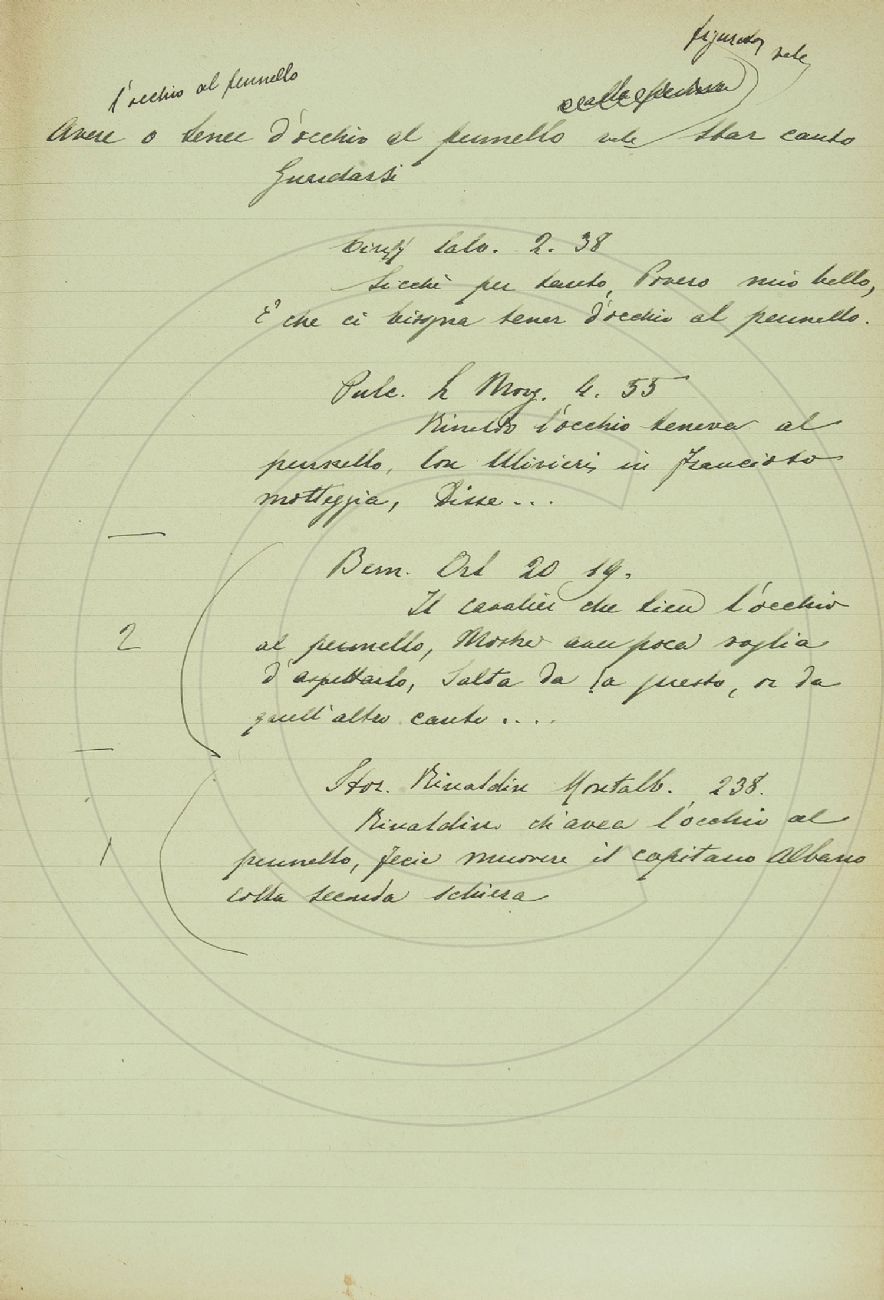 figurato, vale
l'occhio al pennello
Avere o tener d'occhio al pennello vale star cauto
Guardarsi
Ciriff Calv. 2. 38
Sicchè per tanto, Povero mio bello,
E' che ci bisogna tener d'occhio al pennello.
Pulc. L. Morg. 4. 55
Rinaldo l'occhio teneva al
pennello, Con Ulivieri in francioso
motteggia, Disse...
Bern. Orl 20 19.
Il cavalier che tien l'occhio
2
al pennello, Mostra aver poca voglia
d'aspettarlo, Salta da a questo, or da
quell'altro canto....
Stor. Rinaldin Montalb. 238.
Rinaldin ch'avea l'occhio al
1
pennello, fecie muovere il capitano Albano
colla seconda schiera